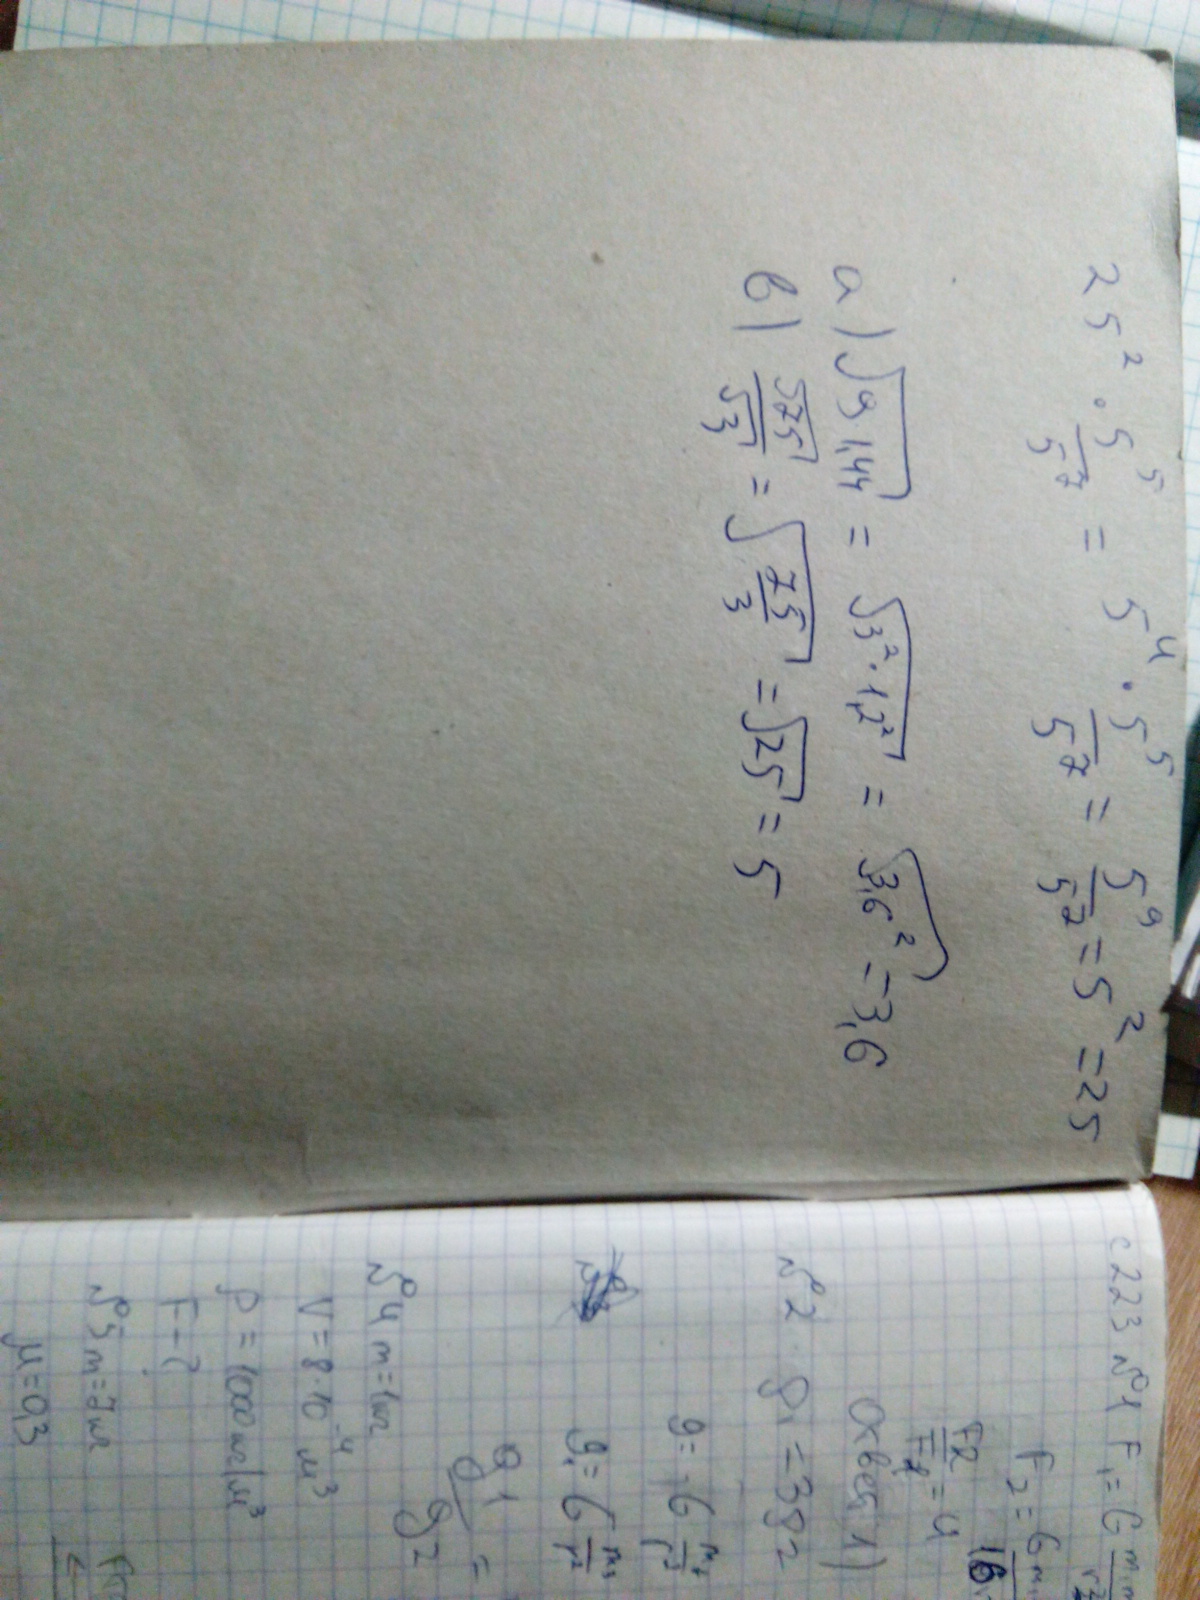 25² · 5⁵/5⁷ = 5⁴ · 5⁵/5⁷ = 5⁹/5⁷ = 5² = 25
а) √9·1,44 = √3²·1,2² = √3,6² = 3,6
в) √75/√3 = √75/3 = √25 = 5
с 223 №1 F₁ = G
F₂ = G
F2/F1 = 4
Ответ 1)
№2 g₁ = 3g₂
g = G
g₁ = G
g1/g2 =
№4 m = 1кг
V = 8·10⁻⁴ м³
ρ = 1000 кг/м³
F - ?
№3 m = 7кг
μ = 0,3